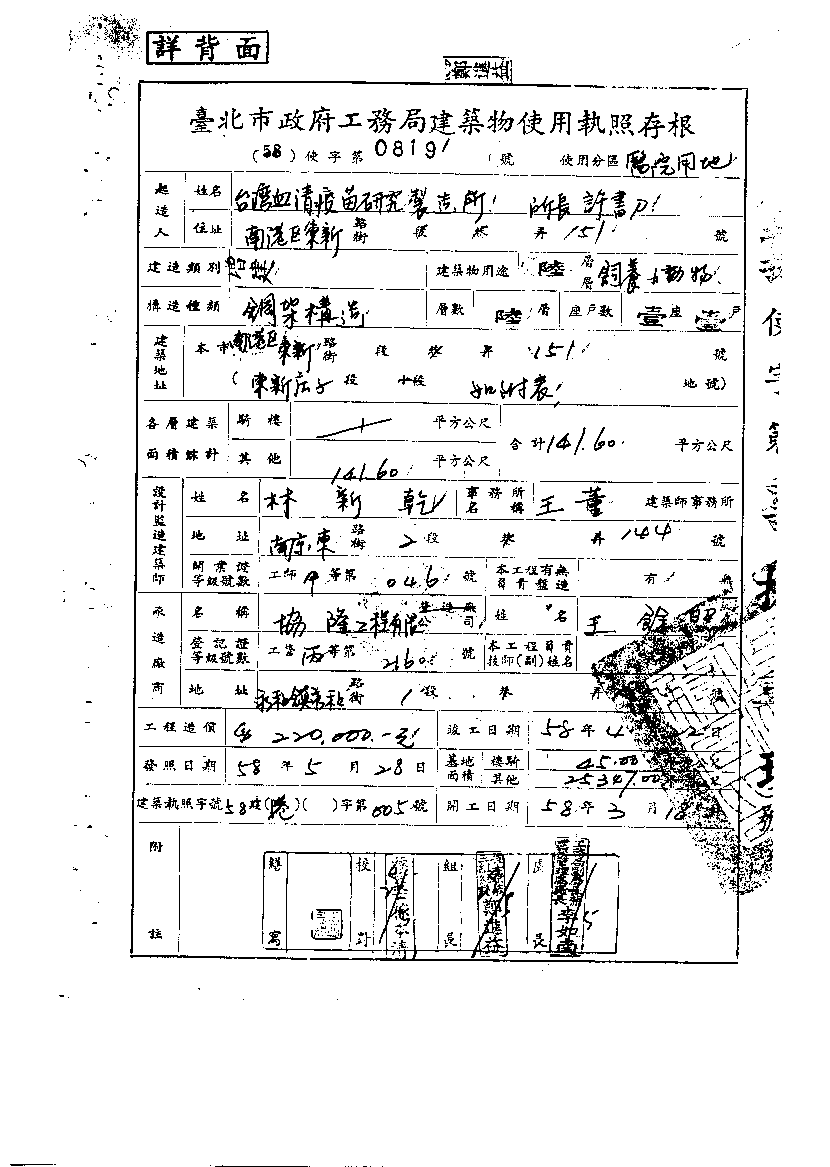 詳背面
臺北市政府工務局建築物使用執照存根
(58)使字第0819號 使用分區 醫院用地
起造人 姓名 台灣血清疫苗研究製造所 所長 許書刀
住址 南港區東新 路街 段 巷 弄 151 號
建造類別 建築物用途 陸層 層 飼養小動物
構造種類 鋼架構造 層數 陸層 座戶數 壹座壹戶
建築地址 本市南港區東新 路街 段 巷 弄 151 號
(東新庄子段 小段 如附表 地號)
各層建築面積總計 騎樓 平方公尺 合計141.60 平方公尺
其他 141.60 平方公尺
設計監造建築師 姓名 林新乾 事務所名稱 王董 建築師事務所
地址 南京東 路街 2段 巷 弄 144 號
開業證等級號數 工師甲等第046號 本工程有無負責監造 有 無
承造廠商 名稱 協隆工程有限 營造廠公司 姓名 王餘
登記證等級號數 工營丙等第2160號 本工程負責技師(副)姓名
地址 永和鎮 路街 1段 巷 弄 號
工程造價 220,000.-元 竣工日期 58年4月2日
發照日期 58年5月28日 基地面積 樓騎 45.00
其他 25347.00
建築執照字號 58建(港)( )字第005號 開工日期 58年3月18
附註 繕寫 校對 組長 區長